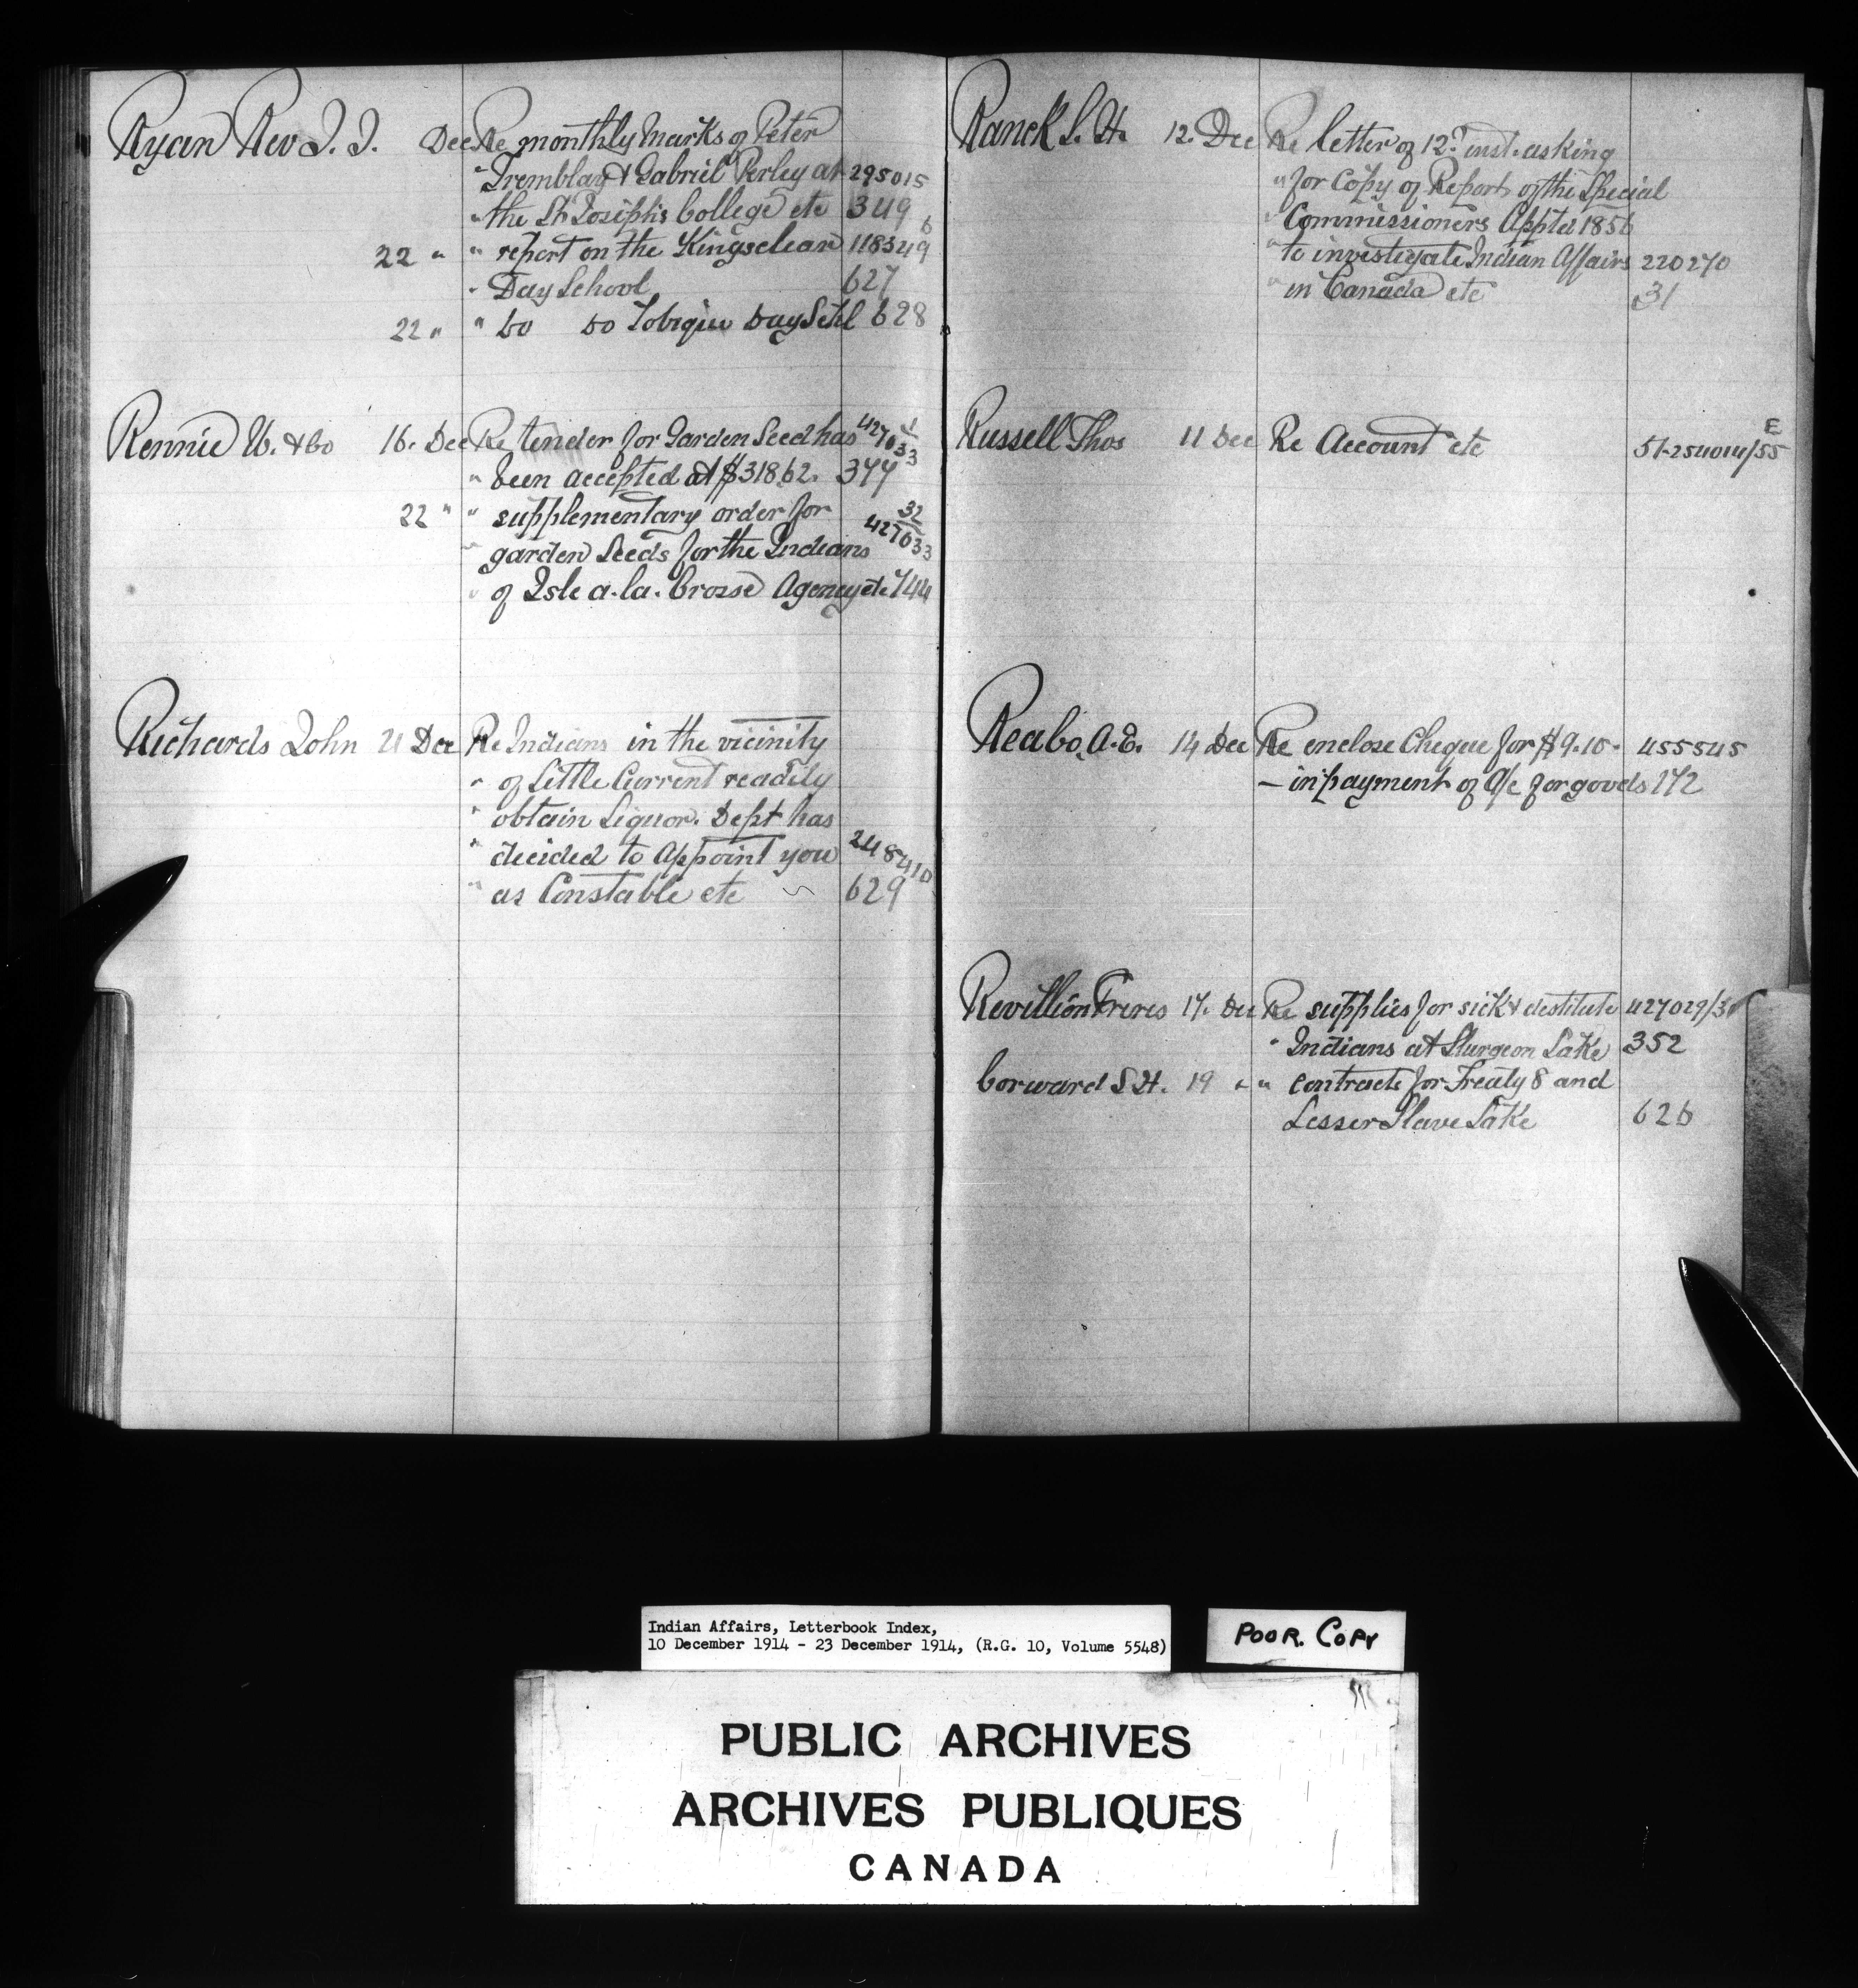 Ryan Rev J. J. Dec Re monthly marks of Peter
" Tremblay & Gabriel Perley at 295015
" the St Josiph's College etc 349
22 " " report on the Kingsclear 118349 6
" Day School 627
22 " " Do Do Tobique Day Schl 628
Rennie W. & Co 16. Dec Re tender for Garden Seed has 427033 1
" been accepted at $318.62. 377
22 " " supplementary order for 32
" garden Seeds for the Indians 427033
" of Isle a-la-Crosse Agency etc 744
Richards John 21 Dec Re Indians in the vicinity
" of Little Current readily
" obtain Liquor. Dept has
" decided to Appoint you 248410
" as Constable etc 629
Ranck S. H. 12. Dec Re letter of 12th inst. asking
" for Copy of Report of the Special
" Commissioners Appted 1856
" to investigate Indian Affairs 220270
" in Canada etc 31
Russell Thos 11 Dec Re Account etc 51-254014/55 E
Reabo, A. E. 14 Dec Re enclose Cheque for $9.10. 455545
— in payment of a/c for goods 172
Revillion Freres 17. Dec Re supplies for sick & destitute 427029/3
" Indians at Sturgeon Lake 352
Corward S H. 19 " " contracts for Treaty 8 and
Lesser Slave Lake 626
Indian Affairs, Letterbook Index,
10 December 1914 - 23 December 1914, (R.G. 10, Volume 5548)
POOR. COPY
PUBLIC ARCHIVES
ARCHIVES PUBLIQUES
CANADA